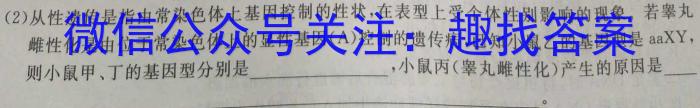 (2)从性遗传是指由常染色体上基因控制的性状,在表型上受个体性别影响的现象。若睾丸
微信公众号关注:趣找答案
雌性化是由常染色体的显性基因(A)控制的遗传病,小鼠的基因型是aaXY,
则小鼠甲、丁的基因型分别是,小鼠丙(睾丸雌性化)产生的原因是
。